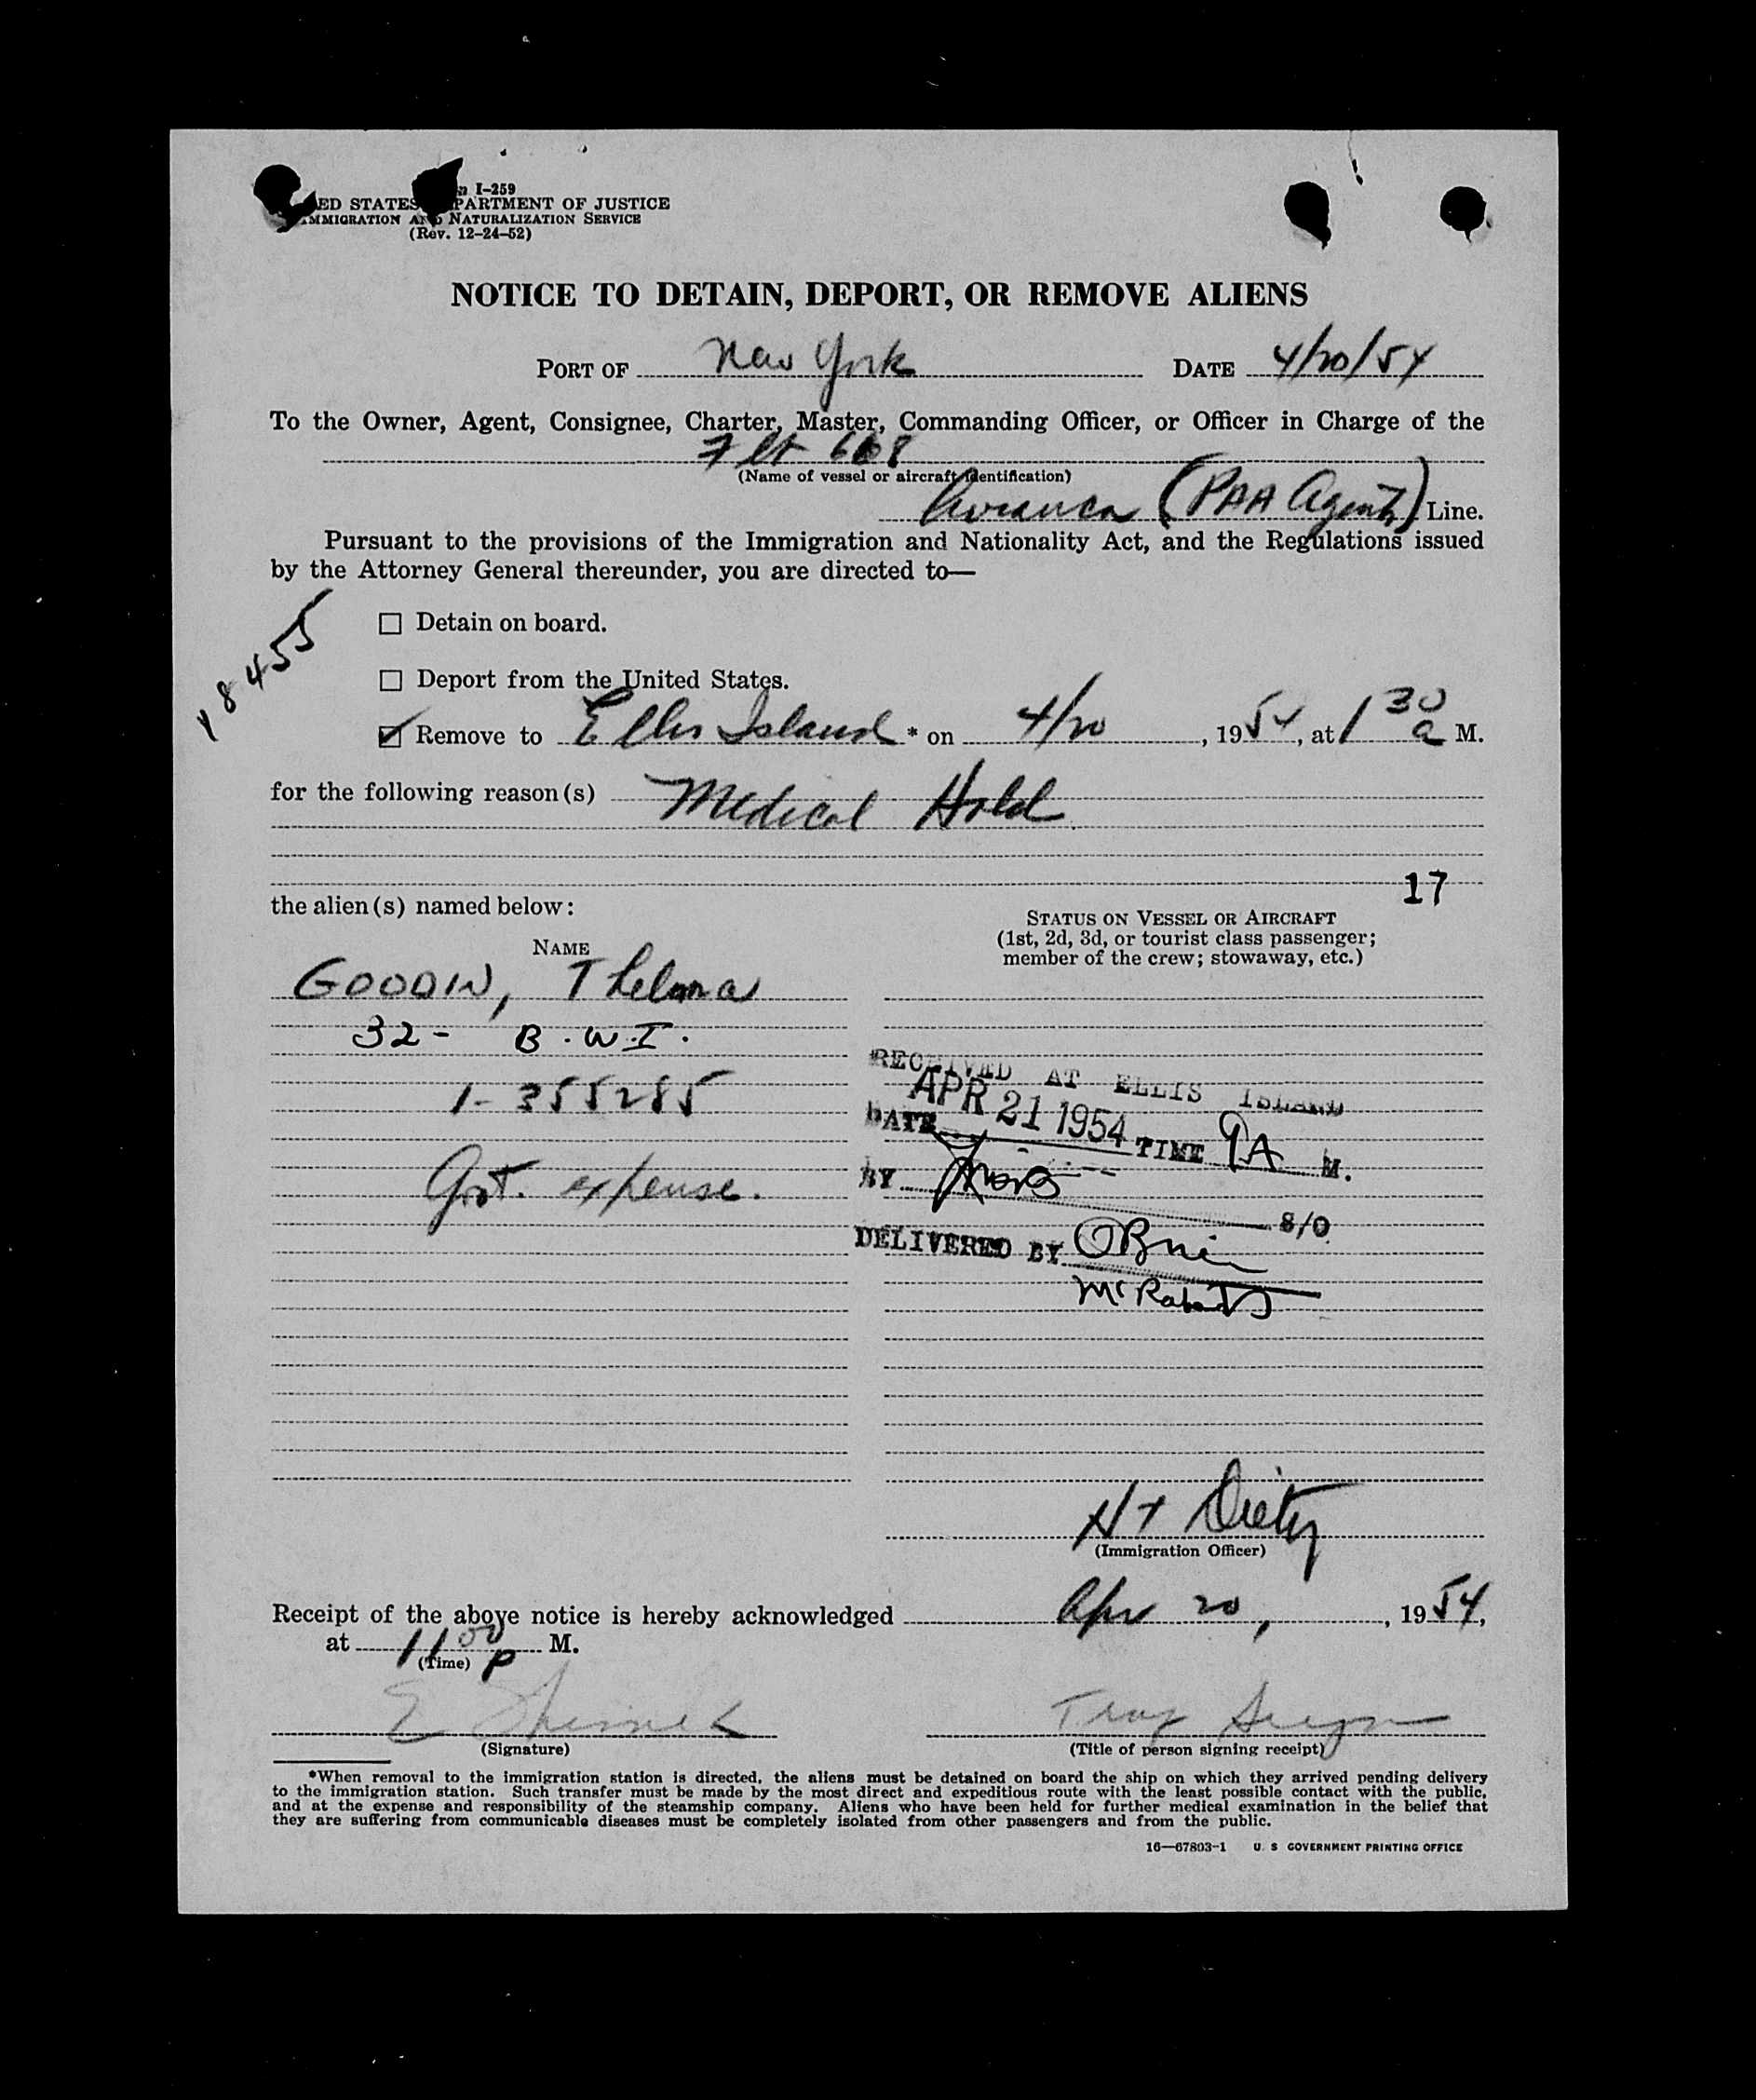 I-259
ED STATES PARTMENT OF JUSTICE
IMMIGRATION AND NATURALIZATION SERVICE
(Rev. 12-24-52)
NOTICE TO DETAIN, DEPORT, OR REMOVE ALIENS
PORT OF New York DATE 4/20/54
To the Owner, Agent, Consignee, Charter, Master, Commanding Officer, or Officer in Charge of the
Flt 668
(Name of vessel or aircraft identification)
Avianca (PAA Agents) Line.
Pursuant to the provisions of the Immigration and Nationality Act, and the Regulations issued
by the Attorney General thereunder, you are directed to—
18455
☐ Detain on board.
☐ Deport from the United States.
☑ Remove to Ellis Island * on 4/20, 1954, at 1 30 a M.
for the following reason(s) Medical Hold
17
the alien(s) named below:
STATUS ON VESSEL OR AIRCRAFT
(1st, 2d, 3d, or tourist class passenger;
member of the crew; stowaway, etc.)
NAME
GOODIN, Thelma
32- B.W.I.
1-355285
Gvt. expense.
RECEIVED AT ELLIS ISLAND
DATE APR 21 1954 TIME 9A M.
BY S/O
DELIVERED BY OBrien
McRoberts
H T Dietz
(Immigration Officer)
Receipt of the above notice is hereby acknowledged Apr 20, , 1954,
at 11 00 P M.
(Time)
E
(Signature)
(Title of person signing receipt)
*When removal to the immigration station is directed, the aliens must be detained on board the ship on which they arrived pending delivery
to the immigration station. Such transfer must be made by the most direct and expeditious route with the least possible contact with the public,
and at the expense and responsibility of the steamship company. Aliens who have been held for further medical examination in the belief that
they are suffering from communicable diseases must be completely isolated from other passengers and from the public.
16—67803-1 U. S GOVERNMENT PRINTING OFFICE